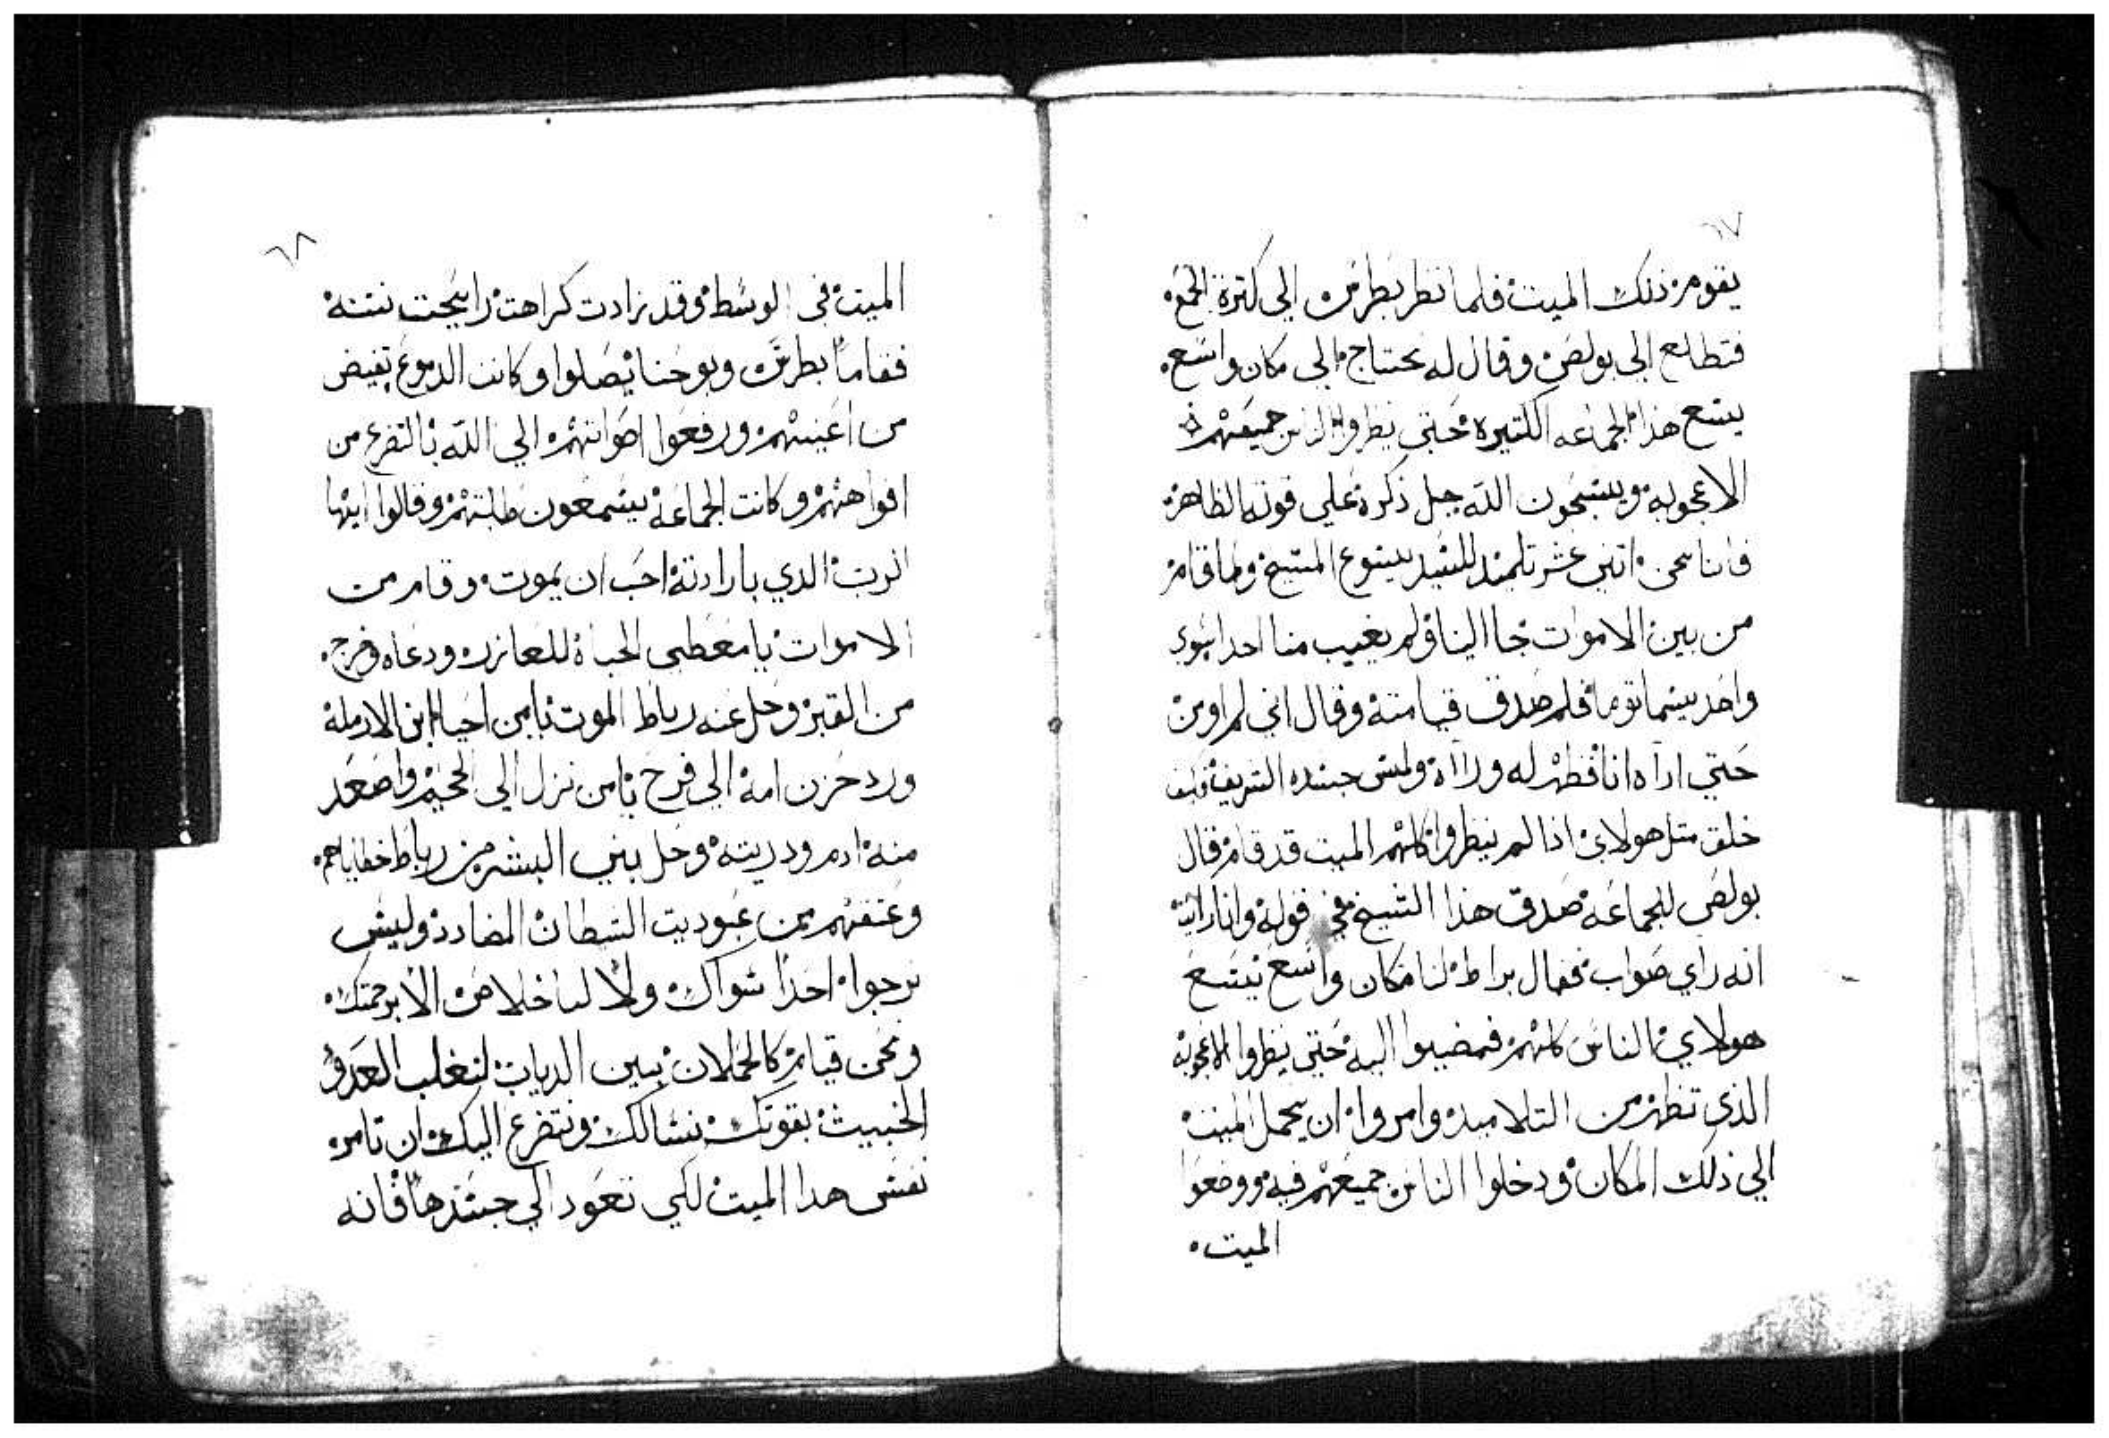 ٦٧
يقوم ذلك الميت فلما نظر بطرس الي كترة الجمع
فتطلع الي بولص وقال له نحتاج الي مكان واسع
يسع هذا الجماعه الكتيره حتي ينظروا الناس جميعهم
الاعجوبه ويسبحون الله جل ذكره علي قوته الظاهره
فاننا نحن اتني عشر تلميذ للسيد يسوع المسيح ولما قام
من بين الاموات جا الينا ولم يغيب منا احدا سوي
واحد يسما توما فلم صدق قيامته وقال اني لم اومن
حتي اراه انا فظهر له وراه ولمس جسده الشريف فكيف
خلق متل هولاي اذا لم ينظروا كلهم الميت قد قام فقال
بولص للجماعه صدق هذا الشيخ في قوله وانا رايت
انه راي صواب فقال براط لنا مكان واسع يسع
هولاي الناس كلهم فمضيوا اليه حتي ينظروا الاعجوبه
الذي تظهر من التلاميد وامروا ان يحمل الميت
الي ذلك المكان ودخلوا الناس جميعهم فيه ووضعوا
الميت
٦٨
الميت في الوسط وقد زادت كراهت رايحت نتنه
فقاما بطرس ويوحنا يصلوا وكانت الدموع تفيض
من اعينهم ورفعوا اصواتهم الي الله بالتضرع من
افواههم وكانت الجماعه يسمعون طلبتهم وقالوا ايها
الرب الدي بارادته احب ان يموت وقام من
الاموات يا معطي الحياه للعازر ودعاه وخرج
من القبر وحل عنه رباط الموت يا من احيا ابن الارمله
ورد حزن امه الي فرح يا من نزل الي الجحيم واصعد
منه ادم ودريته وحل بني البشر من رباط خطاياهم
وعتقهم من عبوديت الشطان المضادد وليس
نرجوا احدا سواك ولا لنا خلاص الا برحمتك
ونحن قيام كالحملان بين الدياب لنغلب العدو
الخبيث بقوتك نسالك ونتضرع اليك ان تامر
نفس هدا الميت لكي تعود الي جسدها فانه